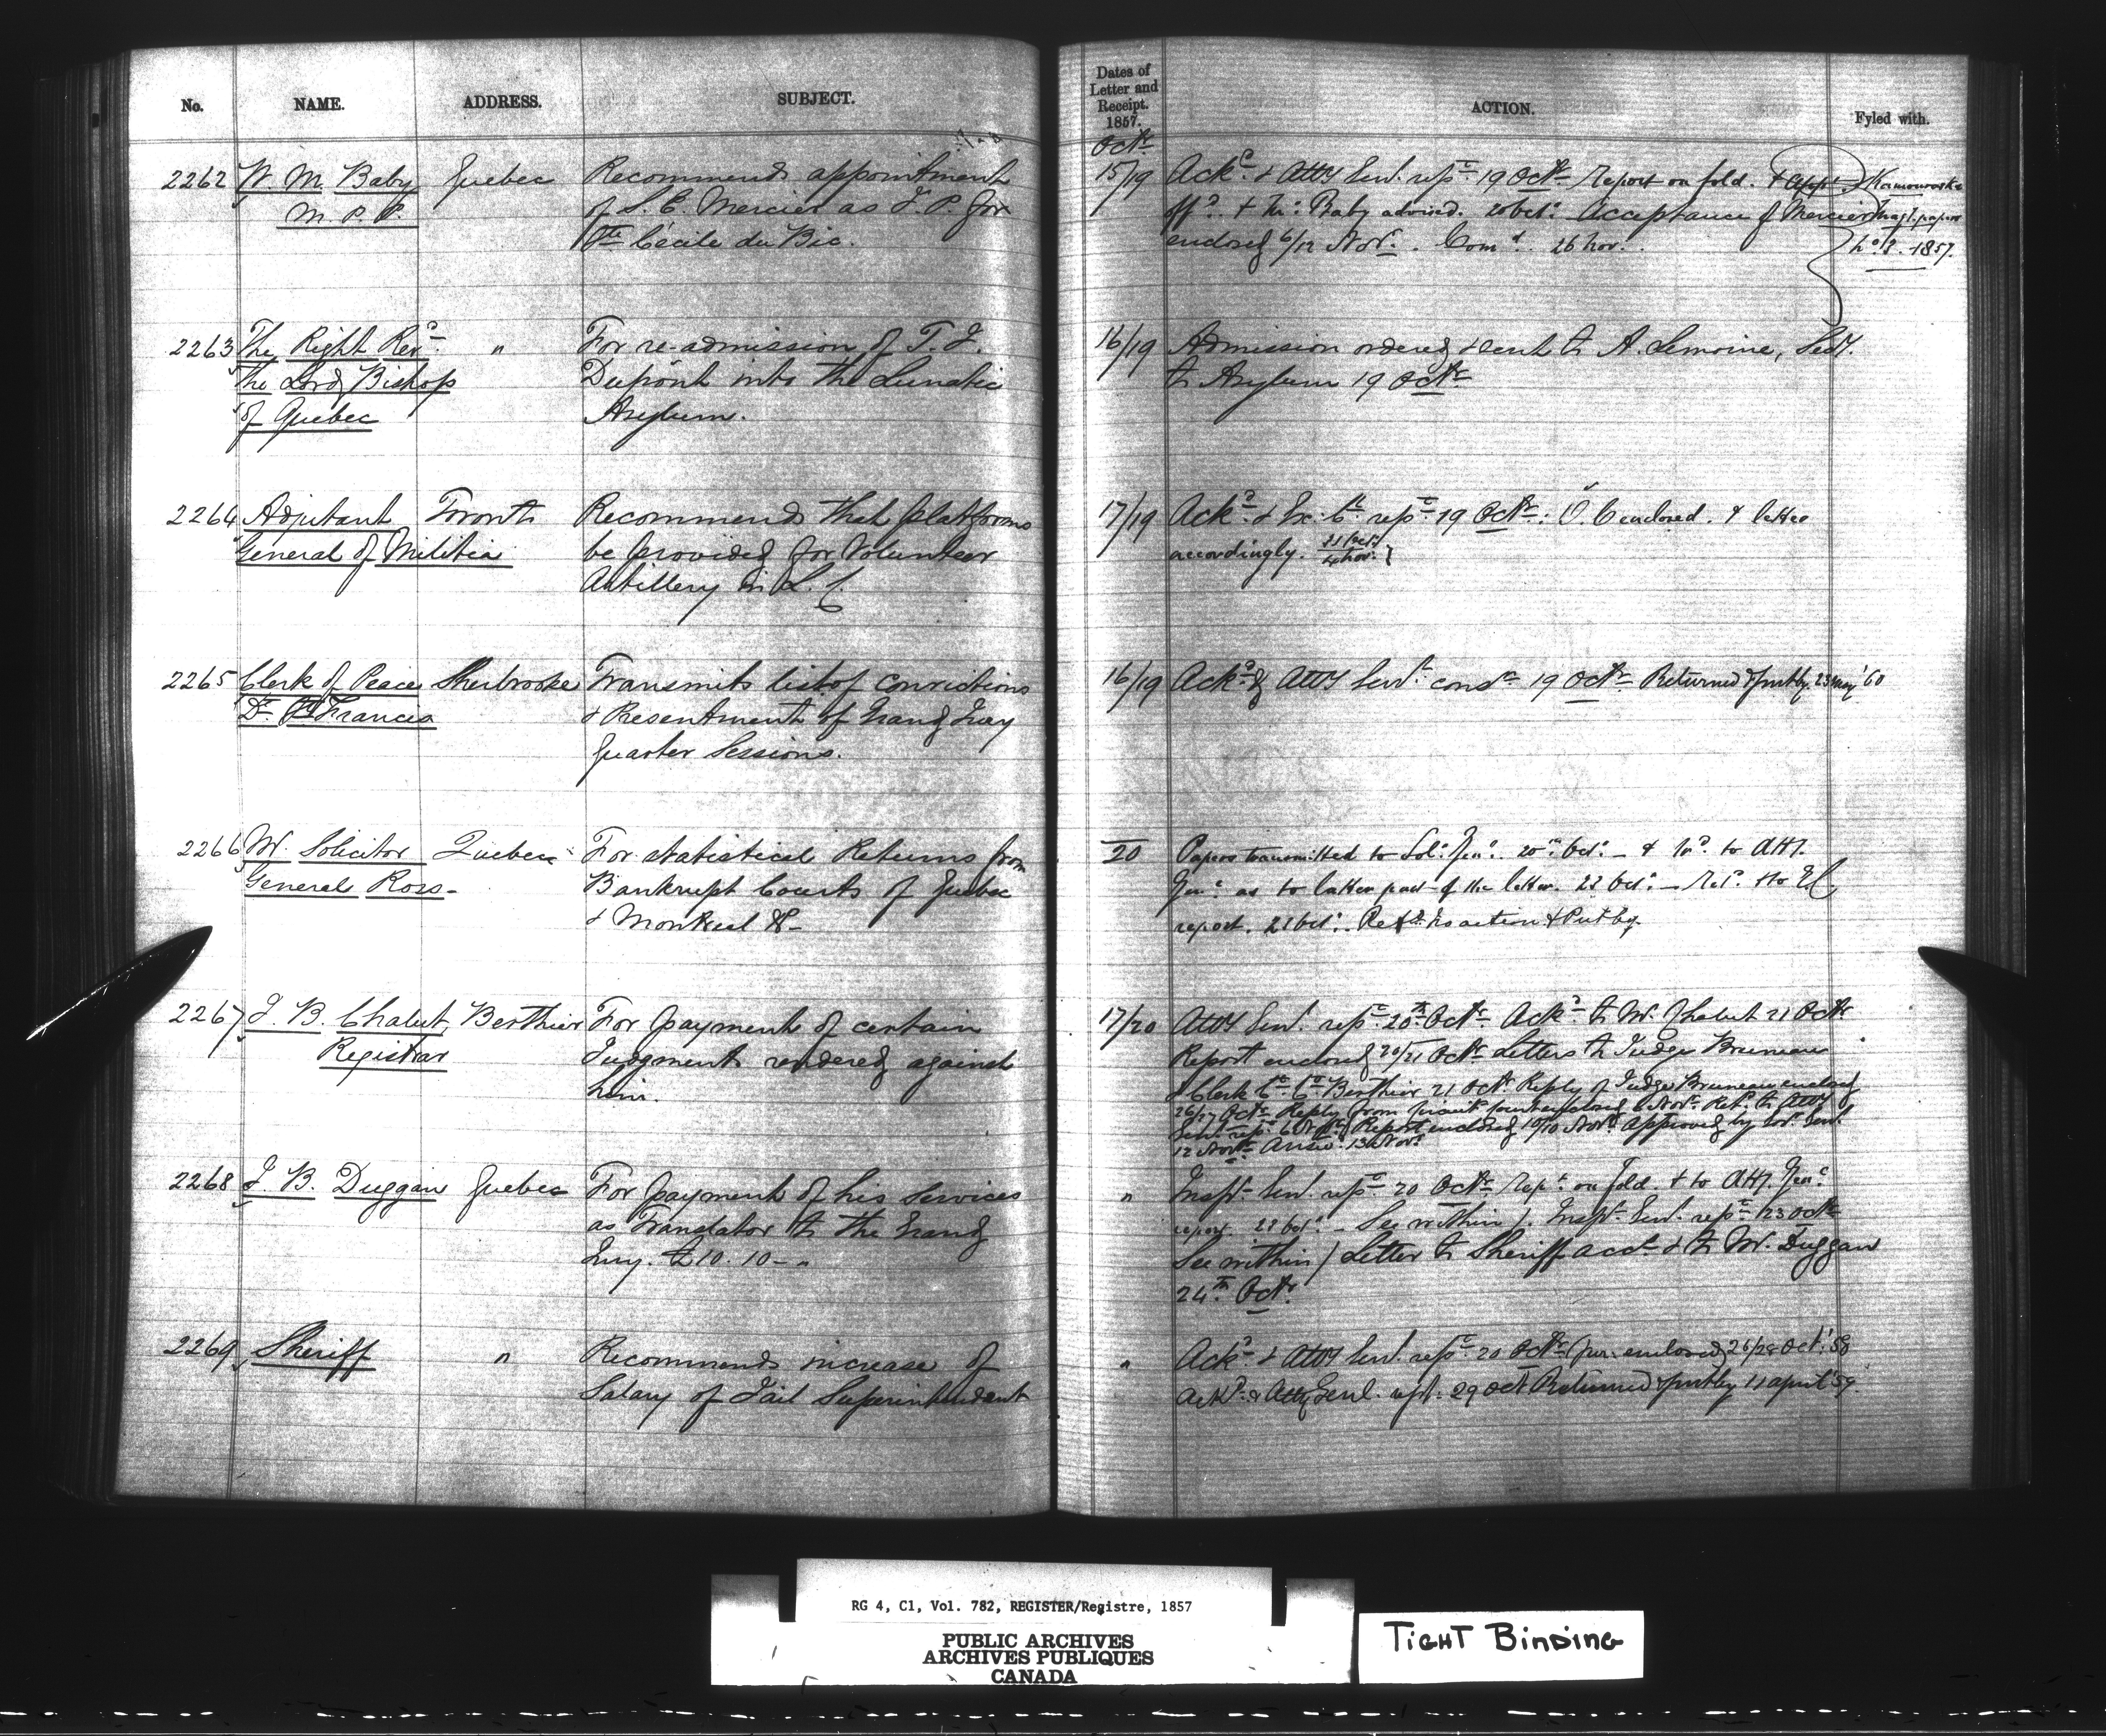 No. NAME. ADDRESS. SUBJECT.
Dates of
Letter and
Receipt.
1857.
ACTION.
Fyled with.
Octr
2262 W. M. Baby Quebec Recommends appointment
M. P. P. of S. E. Mercier as J. P. for
Ste Cécile du Bic.
15/19 Ackd & Atty Genl. refd 19 Octr Report on fold. & appt
offd. & Mr. Baby advised. 20 Octr. Acceptance of Mercier
enclosed 6/12 Novr. Comd. 26 Nov.
Kamouraska
Magt. papers
1857.
2263 The Right Revd. " For re-admission of T. J.
The Lord Bishop Dupont into the Lunatic
of Quebec Asylum.
16/19 Admission ordered & sent to A. Lemoine, Secy.
to Asylum 19 Octr
2264 Adjutant Toronto Recommends that platforms
General of Militia be provided for Volunteer
Artillery in L. C.
17/19 Ackd. & Ex. Cl. refd. 19 Octr. O. C. enclosed. & letter
accordingly.
2265 Clerk of Peace Sherbrooke Transmits list of convictions
Dt. St Francis & Presentment of Grand Jury
Quarter Sessions.
16/19 Ackd. & Atty Genl. consd. 19 Octr. Returned & put by. 23 May '60
2266 Mr. Solicitor Quebec For statistical Returns from
General Ross - Bankrupt Courts of Quebec
& Montreal &c -
20 Papers transmitted to Sol. Genl. 20 Oct. - & to Atty.
Genl. as to latter part of the letter. 22 Oct. -
report. Put by.
2267 J. B. Chalut, Berthier For payment of certain
Registrar Judgments rendered against
him.
17/20 Atty Genl. refd. 20th Octr. Ackd. to Mr. Chalut 21 Octr
Report enclosed 20/21 Octr. Letters to Judge Bruneau
& Clerk Ct. Ct. Berthier 21 Octr. Reply of Judge Bruneau enclosed
26/27 Octr. Reply from Circuit Court enclosed 6 Novr. Refd. to Atty
Genl. Report enclosed 10/10 Novr. Approved by
12 Novr. 13 Novr.
2268 J. B. Duggan Quebec For payment of his services
as Translator to the Grand
Jury. £10. 10 - "
" Inspr. Genl. refd. 20 Octr. Repd. on fold. & to Atty. Genl.
report. 22 Oct. - See within /. Inspr. Genl. refd. 23 Octr
See within / Letter to Sheriff acct & to Mr. Duggan
24th Octr.
2269 Sheriff " Recommends increase of
Salary of Jail Superintendent
" Ackd. & Atty Genl. refd. 20 Octr. enclosed 26/28 Oct. '58
Ackd. & Atty Genl. refd. 29 Oct. Returned & put by 11 April '59
RG 4, C1, Vol. 782, REGISTER/Registre, 1857
PUBLIC ARCHIVES
ARCHIVES PUBLIQUES
CANADA
TIGHT BINDING